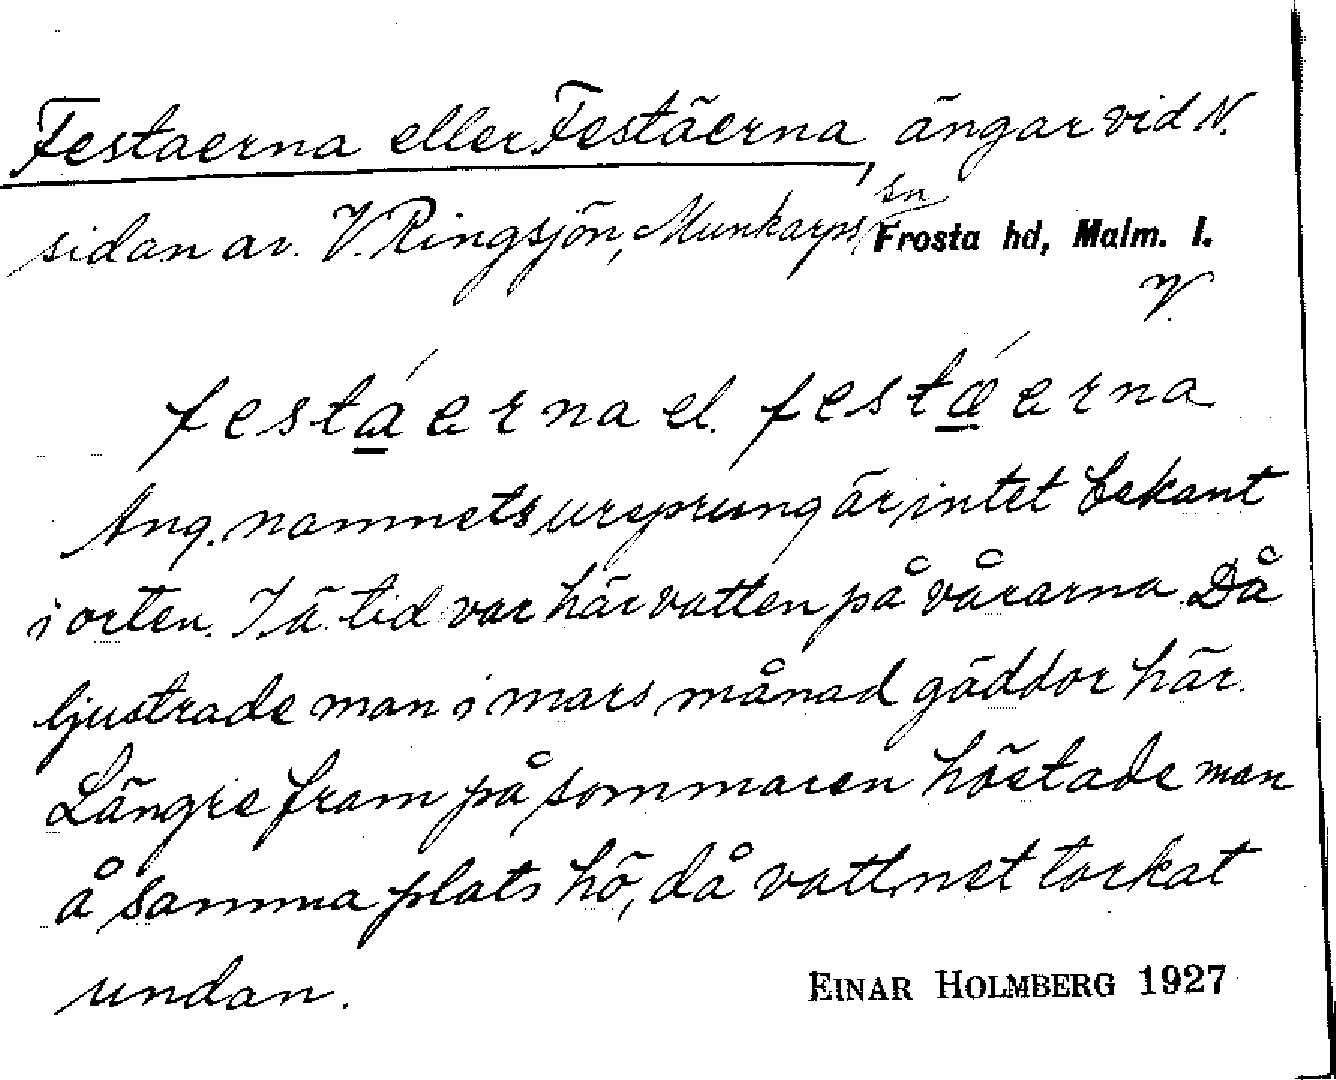 Festaerna eller Festäerna, ängar vid N.
sidan av V. Ringsjön, Munkarps sn Frosta hd, Malm. l.
festáerna el. festǽerna
Ang. namnets ursprung är intet bekant
i orten. I ä. tid var här vatten på vårarna. Då
ljustrade man i mars månad gäddor här.
Längre fram på sommaren höstade man
å samma plats hö, då vattnet torkat
undan.
EINAR HOLMBERG 1927